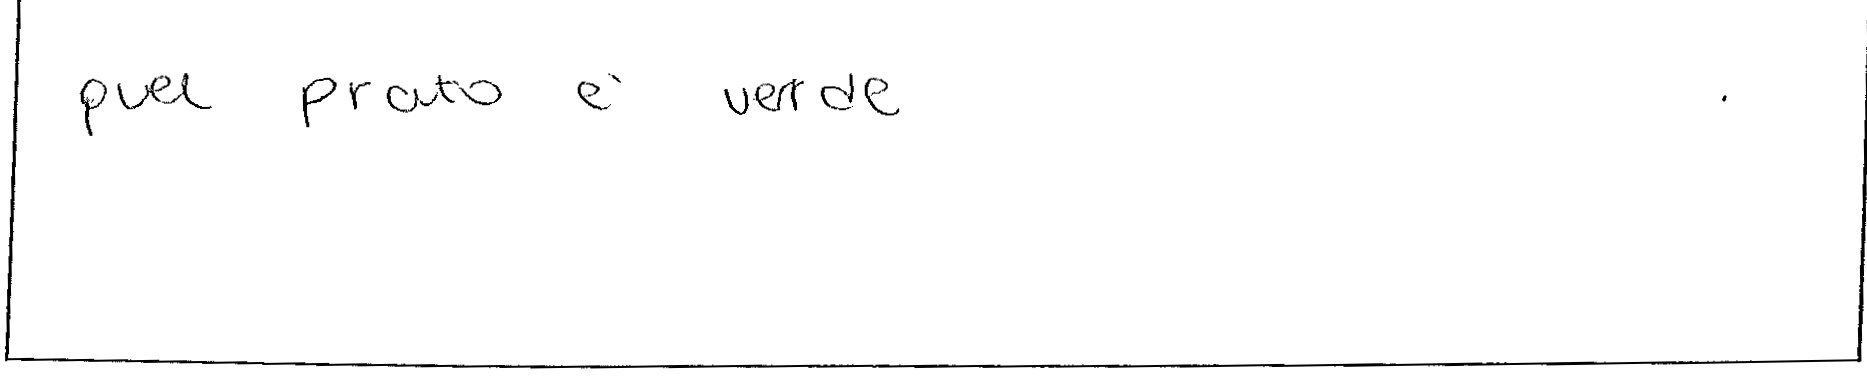 quel prato è verde